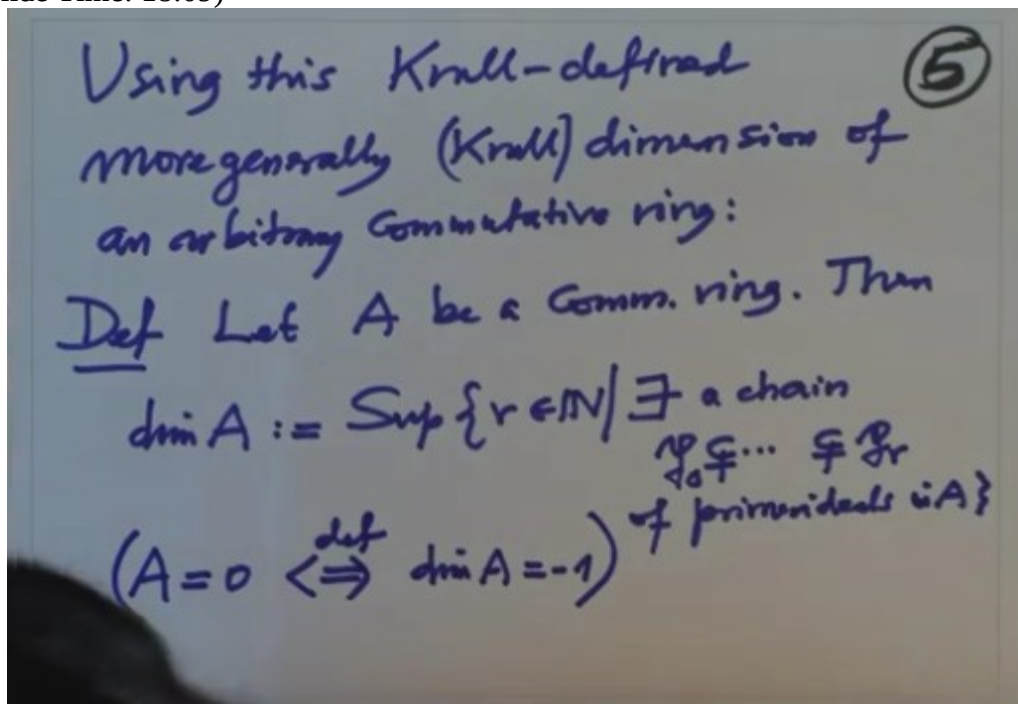 Using this Krull-defined
more generally (Krull) dimension of
an arbitrary Commutative ring:
Def Let A be a Comm. ring. Then
dim A := Sup { r ∈ ℕ | ∃ a chain
𝔭₀ ⊊ ... ⊊ 𝔭ᵣ
of prime ideals in A}
(A = 0 <def⇒ dim A = -1)
5